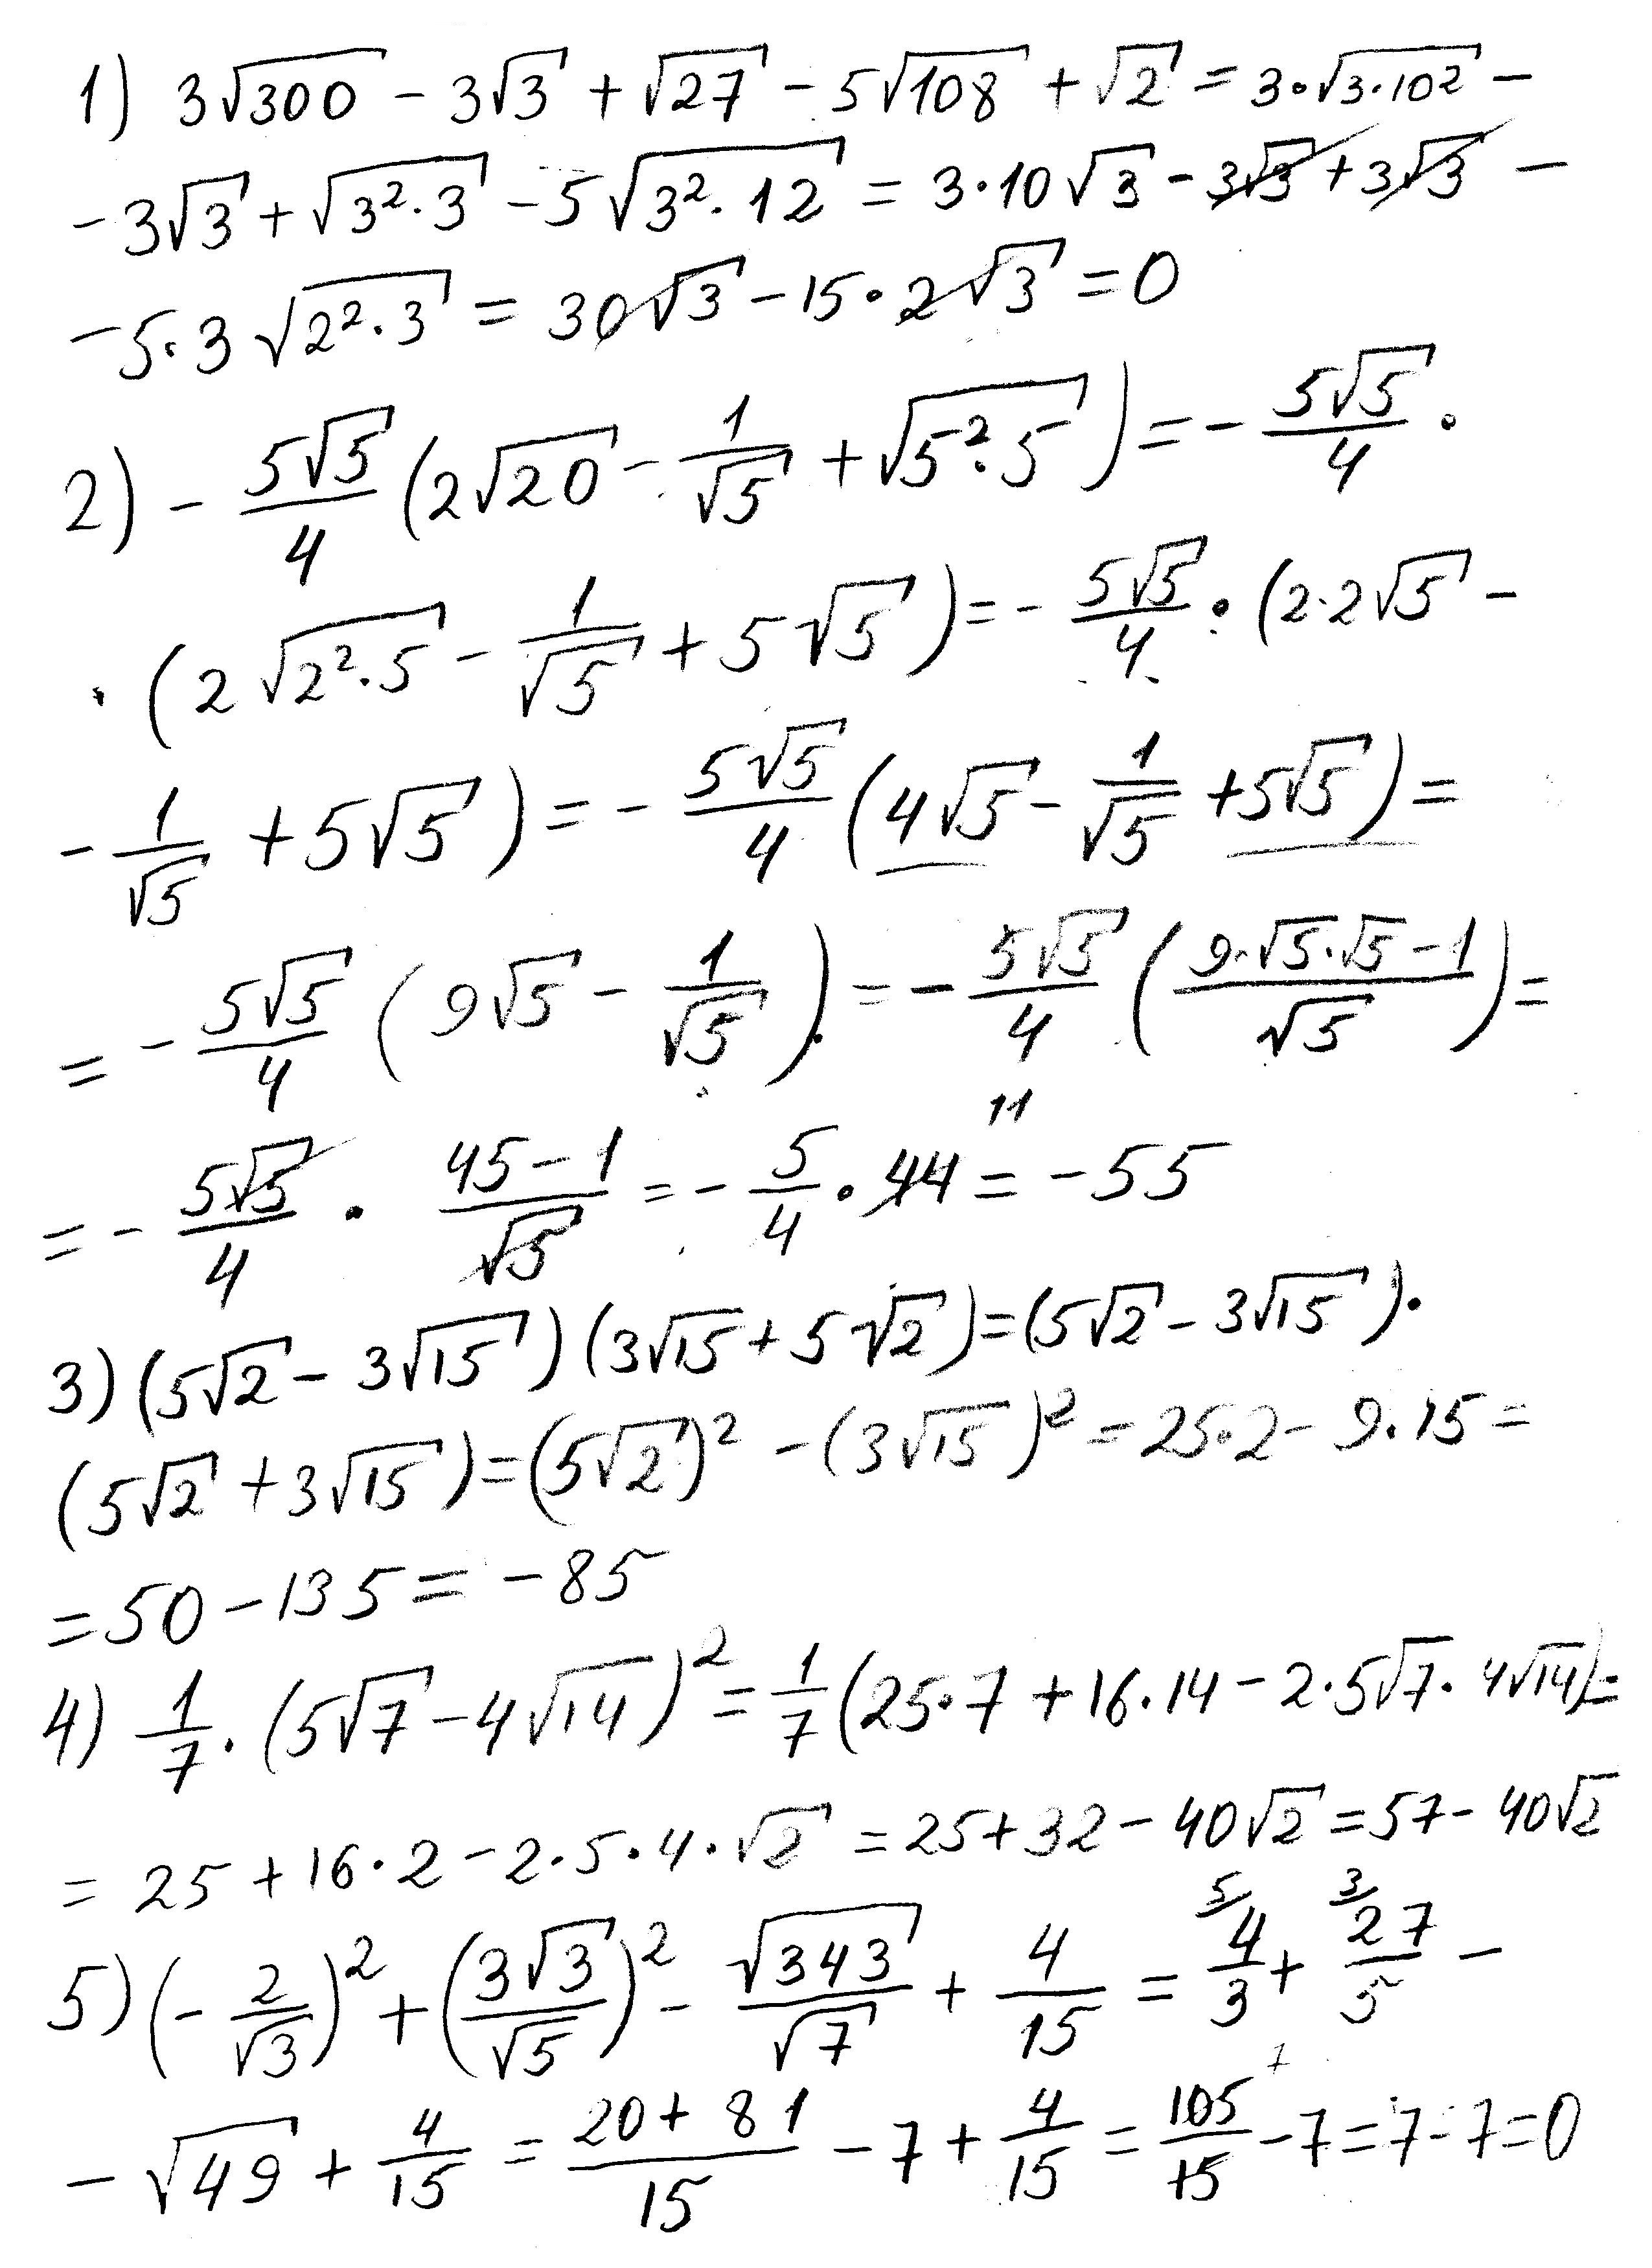 1) 3√300 - 3√3 + √27 - 5√108 + √2 = 3·√(3·10²) -
- 3√3 + √(3²·3) - 5√(3²·12) = 3·10√3 - 3√3 + 3√3 -
- 5·3√(2²·3) = 30√3 - 15·2√3 = 0
2) - 5√5/4 (2√20 - 1/√5 + √(5²·5)) = - 5√5/4 ·
· (2√(2²·5) - 1/√5 + 5√5) = - 5√5/4 · (2·2√5 -
- 1/√5 + 5√5) = - 5√5/4 (4√5 - 1/√5 + 5√5) =
= - 5√5/4 (9√5 - 1/√5) = - 5√5/4 ((9·√5·√5 - 1)/√5) =
= - 5√5/4 · (45 - 1)/√5 = - 5/4 · 44 11 = - 55
3) (5√2 - 3√15)(3√15 + 5√2) = (5√2 - 3√15)·
(5√2 + 3√15) = (5√2)² - (3√15)² = 25·2 - 9·15 =
= 50 - 135 = - 85
4) 1/7 · (5√7 - 4√14)² = 1/7 (25·7 + 16·14 - 2·5√7·4√14) =
= 25 + 16·2 - 2·5·4·√2 = 25 + 32 - 40√2 = 57 - 40√2
5) (- 2/√3)² + (3√3/√5)² - √343/√7 + 4/15 = 5/ 4/3 + 3/ 27/5 -
- √49 + 4/15 = (20 + 81)/15 - 7 + 4/15 = 105/15 7 - 7 = 7 - 7 = 0